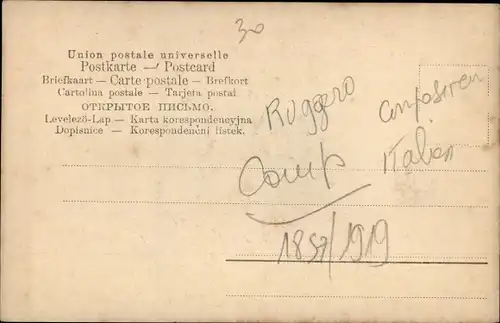 30
Union postale universelle
Postkarte — Postcard
Briefkaart — Carte postale — Brefkort
Cartolina postale — Tarjeta postal
ОТКРЫТОЕ ПИСЬМО.
Levelező-Lap — Karta korespondencyjna
Dopisnice — Korespondenční lístek.
Ruggero
Comp
1857/1919